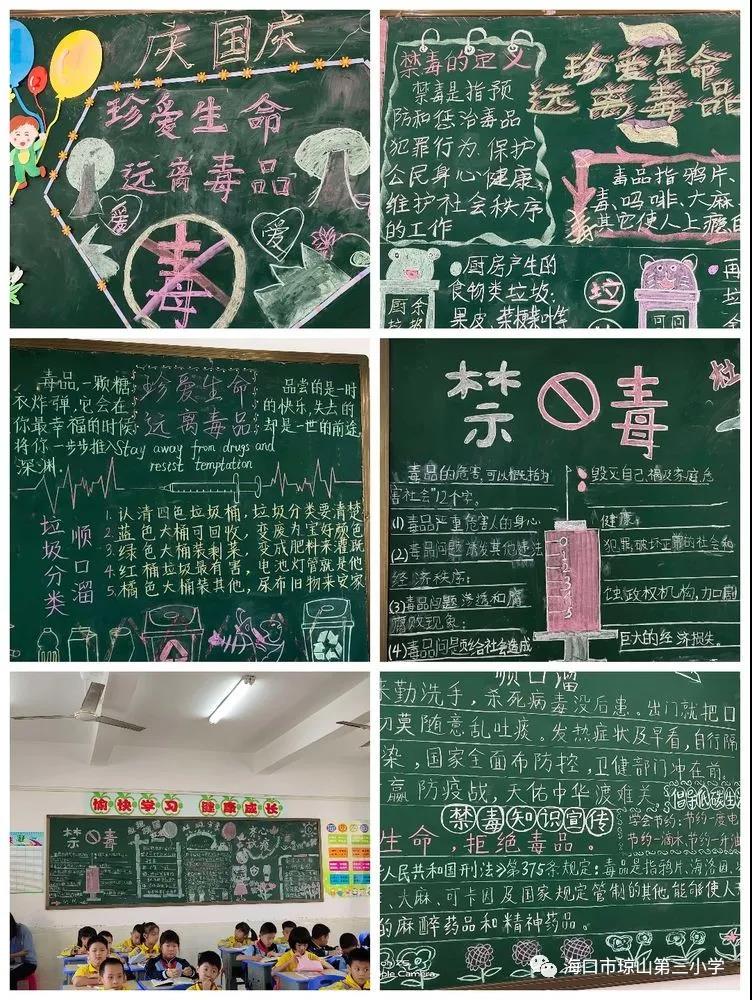 庆国庆
珍爱生命
远离毒品
爱
爱
毒
禁毒的定义
禁毒是指预
防和惩治毒品
犯罪行为、保护
公民身心健康、
维护社会秩序
的工作
珍爱生命
远离毒品
毒品指鸦片、
毒、吗啡、大麻、
其它使人上瘾
厨房产生的
食物类垃圾:
果皮、
厨余
垃
可回
再
毒品,一颗糖
衣炸弹,它会在
你最幸福的时候
将你一步步推入
深渊.
珍爱生命
远离毒品
Stay away from drugs and
resist temptation
品尝的是一时
的快乐,失去的
却是一世的前途,
垃圾分类
顺口溜
1.认清四色垃圾桶,垃圾分类要清楚
2.蓝色大桶可回收,变废为宝好颜色
3.绿色大桶装剩菜,变成肥料来灌溉
4.红桶垃圾最有害,电池灯管就是他
5.橘色大桶装其他,尿布旧物来安家
禁毒
杜
毒品的危害,可以概括为
害社会"12个字。
(1)毒品严重危害人的身心
(2)毒品问题诱发其他违法
经济秩序;
(3)毒品问题渗透和腐
腐败现象;
(4)毒品问题给社会造成
0
1
2
3
4
5
毁灭自己,祸及家庭,危
健康;
犯罪,破坏正常的社会和
蚀政权机构,加剧
巨大的经济损失。
愉快学习 健康成长
禁毒
顺口溜
来勤洗手,杀死病毒没后患。出门就把口
切莫随意乱吐痰。发热症状及早看,自行隔
染,国家全面布防控,卫健部门冲在前。
赢防疫战,天佑中华渡难关
倡导低碳生活
禁毒知识宣传
学会节约:节约一度电
节约一滴水、节约一升油
生命,拒绝毒品。
人民共和国刑法》第375条规定:毒品是指鸦片、海洛因、
、大麻、可卡因及国家规定管制的其他能够使人
的麻醉药品和精神药品。
海口市琼山第三小学